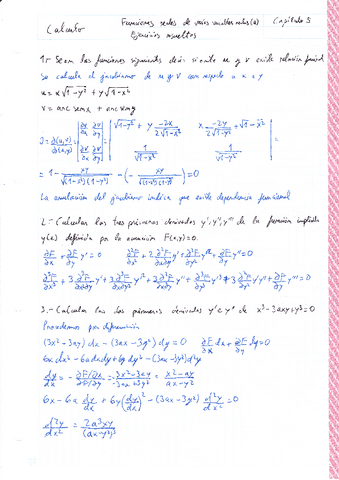 Cálculo Funciones reales de varias variables reales (a) Capítulo 5
Ejercicios resueltos
1.- Sean las funciones siguientes decir si entre u y v existe relación funcional
Se calcula el jacobiano de u y v con respecto a x e y
u = x√(1-y²) + y√(1-x²)
v = arc sen x + arc sen y
J = ∂(u,v)/∂(x,y) = |∂u/∂x ∂u/∂y; ∂v/∂x ∂v/∂y| = |√(1-y²) + y (-2x)/(2√(1-x²)) x (-2y)/(2√(1-y²)) + √(1-x²); 1/√(1-x²) 1/√(1-y²)| =
= 1 - xy/√((1-x²)(1-y²)) - (- xy/√((1-x²)(1-y²))) = 0
La anulación del jacobiano indica que existe dependencia funcional
2.- Calcular las tres primeras derivadas y', y'', y''' de la función implícita
y(x) definida por la ecuación F(x,y)=0.
∂F/∂x + ∂F/∂y y' = 0 ∂²F/∂x² + 2 ∂²F/∂x∂y y' + ∂²F/∂y² y'² + ∂F/∂y y'' = 0
∂³F/∂x³ + 3 ∂³F/∂x²∂y y' + 3 ∂³F/∂x∂y² y'² + 3 ∂²F/∂x∂y y'' + ∂³F/∂y³ y'³ + 3 ∂²F/∂y² y'y'' + ∂F/∂y y''' = 0
3.- Calcular las dos primeras derivadas y' e y'' de x³-3axy+y³=0
Procedemos por diferenciación
(3x²-3ay) dx - (3ax-3y²) dy = 0 ∂F/∂x dx + ∂F/∂y dy = 0
6x dx² - 6a dx dy + 6y dy² - (3ax-3y²) d²y
dy/dx = - (∂F/∂x)/(∂F/∂y) = - (3x²-3ay)/(-3ax+3y²) = (x²-ay)/(ax-y²)
6x - 6a dy/dx + 6y (dy/dx)² - (3ax-3y²) d²y/dx² = 0
d²y/dx² = 2a³xy/(ax-y²)³